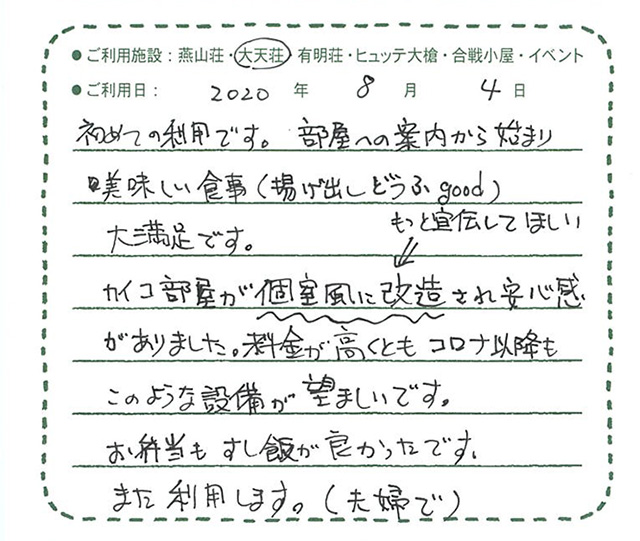 ●ご利用施設：燕山荘・大天荘・有明荘・ヒュッテ大槍・合戦小屋・イベント
●ご利用日： 2020 年 8 月 4 日
初めての利用です。部屋への案内から始まり
美味しい食事（揚げ出しどうふ good）
大満足です。
もっと宣伝してほしい
カイコ部屋が個室風に改造され安心感
がありました。料金が高くともコロナ以降も
このような設備が望ましいです。
お弁当もすし飯が良かったです。
また利用します。（夫婦で）